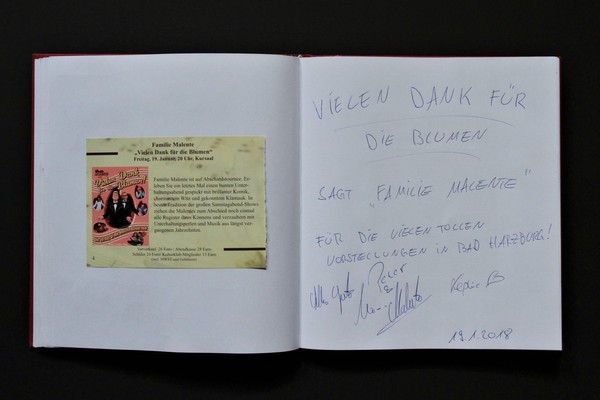 Familie Malente
„Vielen Dank für die Blumen“
Freitag, 19. Januar, 20 Uhr, Kursaal
Familie Malente ist auf Abschiedstournee. Er-
leben Sie ein letztes Mal einen bunten Unter-
haltungsabend gespickt mit brillanter Komik,
charmantem Witz und gekonntem Klamauk. In
bester Tradition der großen Samstagabend-Shows
ziehen die Malentes zum Abschied noch einmal
alle Register ihres Könnens und verzaubern mit
Unterhaltungsperlen und Musik aus längst ver-
gangenen Jahrzehnten.
Vielen Dank
Blumen!
4
VIELEN DANK FÜR
DIE BLUMEN
SAGT „FAMILIE MALENTE“
FÜR DIE VIELEN TOLLEN
VORSTELLUNGEN IN BAD HARZBURG!
Peter
19.1.2018